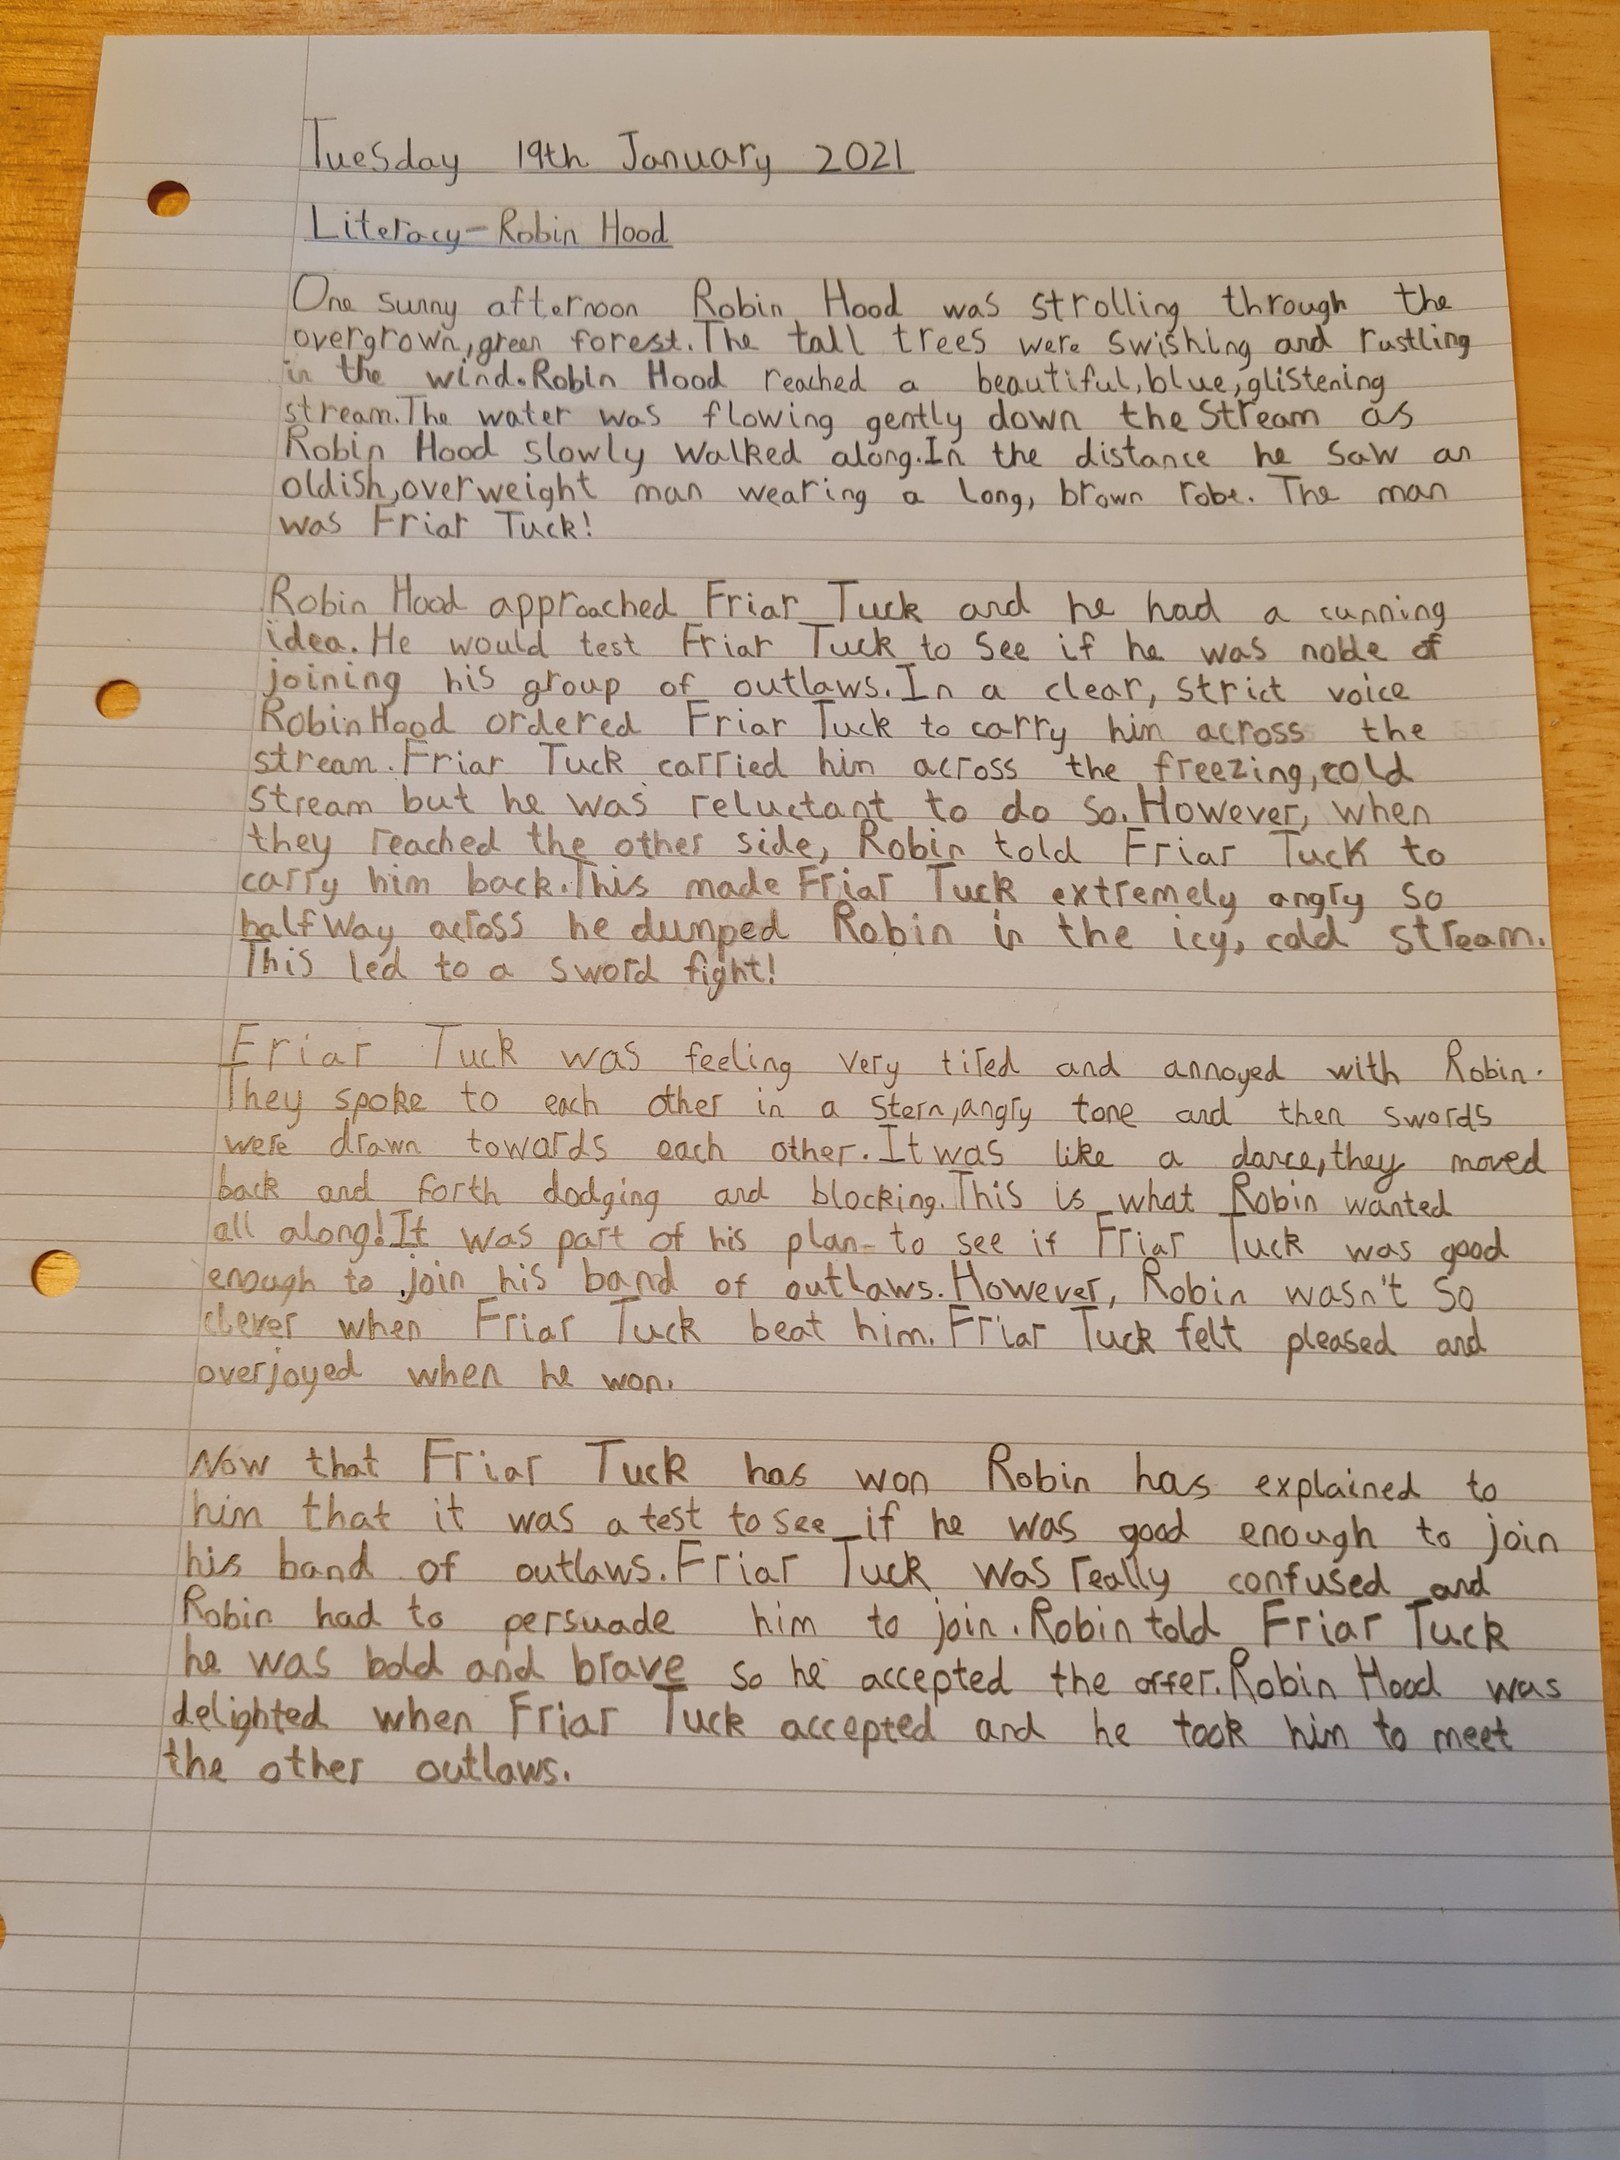 Tuesday 19th January 2021
Literacy-Robin Hood
One sunny afternoon Robin Hood was strolling through the
overgrown,green forest.The tall trees were swishing and rustling
in the wind.Robin Hood reached a beautiful,blue,glistening
stream.The water was flowing gently down the stream as
Robin Hood slowly walked along.In the distance he saw an
oldish,overweight man wearing a long, brown robe. The man
was Friar Tuck!
Robin Hood approached Friar Tuck and he had a cunning
idea. He would test Friar Tuck to see if he was noble of
joining his group of outlaws. In a clear, strict voice
Robin Hood ordered Friar Tuck to carry him across the
stream. Friar Tuck carried him across the freezing,cold
stream but he was reluctant to do so. However, when
they reached the other side, Robin told Friar Tuck to
carry him back.This made Friar Tuck extremely angry so
halfway across he dumped Robin in the icy, cold stream.
This led to a sword fight!
Friar Tuck was feeling very tired and annoyed with Robin.
They spoke to each other in a stern,angry tone and then swords
were drawn towards each other. It was like a dance,they moved
back and forth dodging and blocking.This is what Robin wanted
all along!It was part of his plan- to see if Friar Tuck was good
enough to join his band of outlaws. However, Robin wasn't so
clever when Friar Tuck beat him. Friar Tuck felt pleased and
overjoyed when he won.
Now that Friar Tuck has won Robin has explained to
him that it was a test to see if he was good enough to join
his band of outlaws. Friar Tuck was really confused and
Robin had to persuade him to join. Robin told Friar Tuck
he was bold and brave so he accepted the offer. Robin Hood was
delighted when Friar Tuck accepted and he took him to meet
the other outlaws.